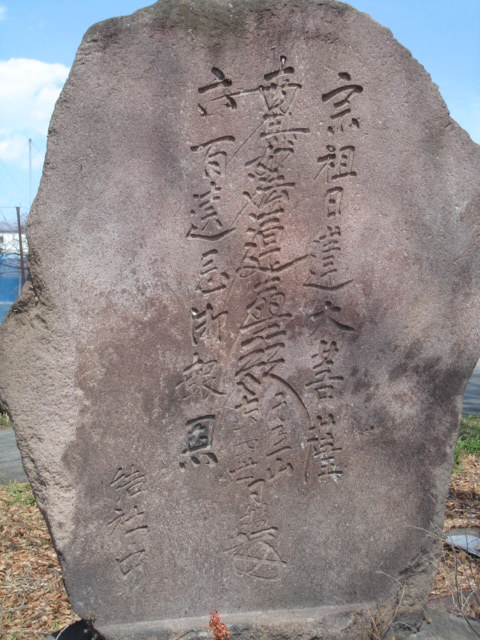 宗祖日蓮大菩薩
南無妙法蓮華経
六百遠忌御報恩
結社中